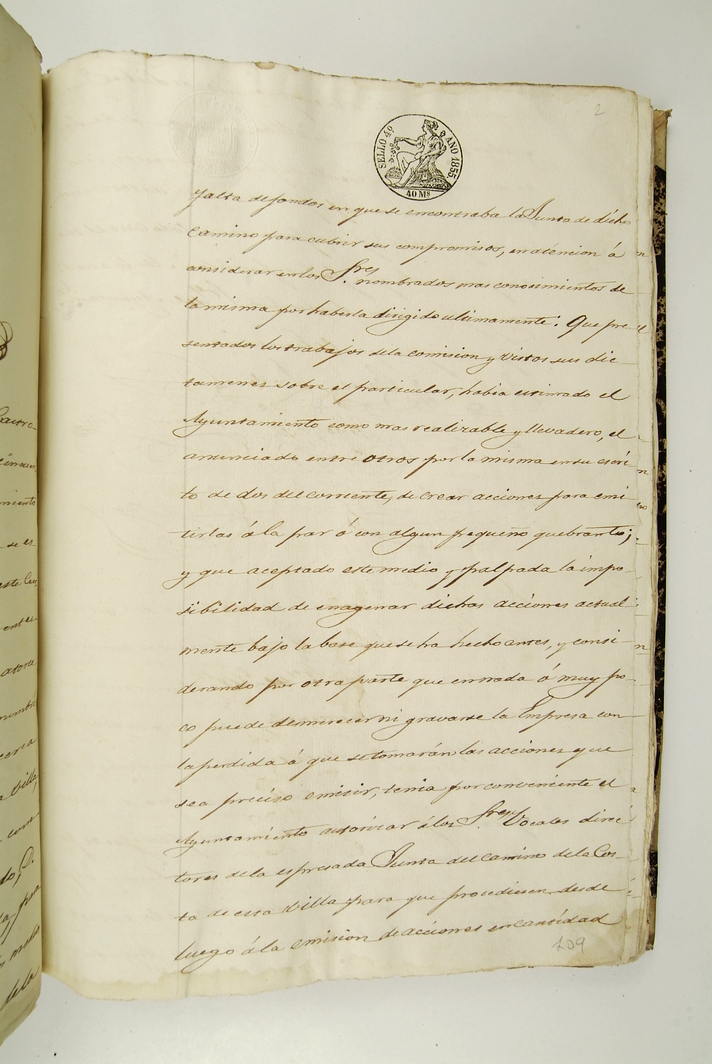 2
SELLO 4º AÑO 1855.
40 Ms
falta de fondos en que se encontraba la Junta de dicho
camino para cubrir sus compromisos, en atencion á
considerar en los Sres. nombrados mas conocimientos de
la misma por haberla dirigido ultimamente. Que pre
sentados los trabajos de la comision y vistos sus dic
tamenes sobre el particular, habia estimado el
Ayuntamiento como mas realizable y llevadero, el
anunciado entre otros por la misma en su escri
to de dos del corriente, de crear acciones para emi
tirlas á la par ó con algun pequeño quebranto;
y que aceptado este medio y palpada la impo
sibilidad de enagenar dichas acciones actual
mente bajo la base que se ha hecho antes, y consi
derando por otra parte que en nada ó muy po
co puede desmerecer ni gravarse la Empresa con
la perdida á que se tomarán las acciones que
sea preciso emitir, tenia por conveniente el
Ayuntamiento autorizar á los Sres. Vocales direc
tores de la espresada Junta del camino de la Cos
ta de esta Villa para que procediesen desde
luego á la emision de acciones en cantidad
409